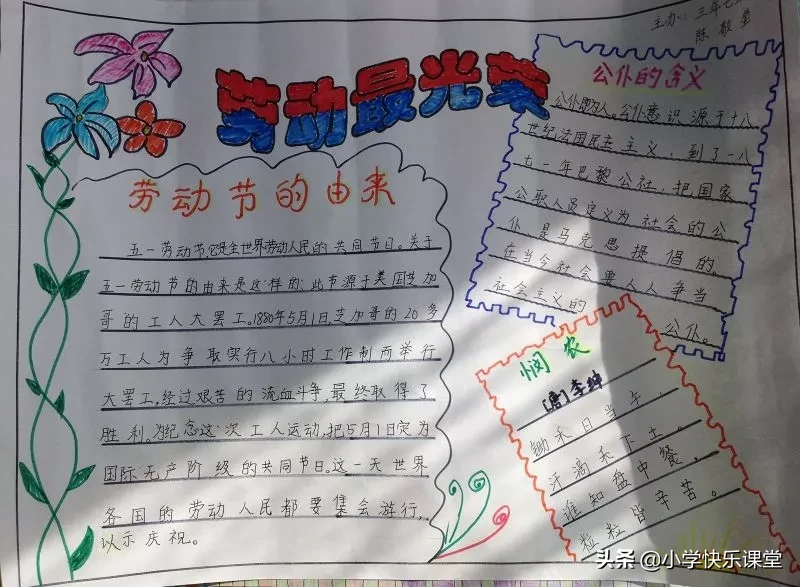 主办：三年七
陈敬萱
劳动最光荣
劳动节的由来
五一劳动节,它是全世界劳动人民的共同节日。关于
五一劳动节的由来是这样的：此节源于美国芝加
哥的工人大罢工。1886年5月1日,芝加哥的20多
万工人为争取实行八小时工作制而举行
大罢工,经过艰苦的流血斗争,最终取得了
胜利。为纪念这次工人运动,把5月1日定为
国际无产阶级的共同节日。这一天世界
各国的劳动人民都要集会游行,
以示庆祝。
公仆的含义
公仆即为人。公仆意识源于十八
世纪法国民主主义,到了一八
七一年巴黎公社,把国家
公职人员定义为社会的公
仆是马克思提倡的
在当今社会要人人争当
社会主义的
公仆。
悯农
[唐]李绅
锄禾日当午,
汗滴禾下土。
谁知盘中餐,
粒粒皆辛苦。
头条 @小学快乐课堂